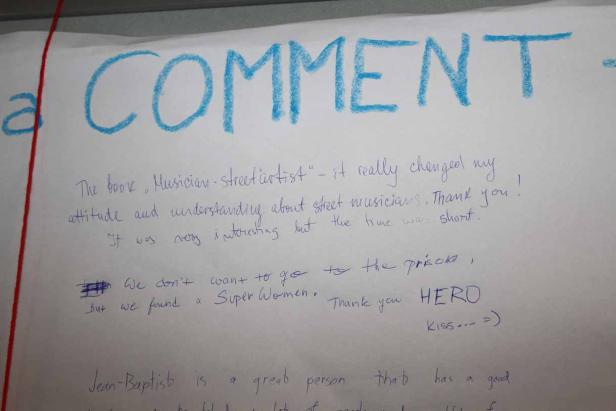 a COMMENT -
The book „Musician-street artist" - it really changed my
attitude and understanding about street musicians. Thank you!
It was very interesting but the time was short.
We don't want to go to the prison,
but we found a Super Women. Thank you HERO
Kiss.... =)
Jean-Baptist is a great person that has a good